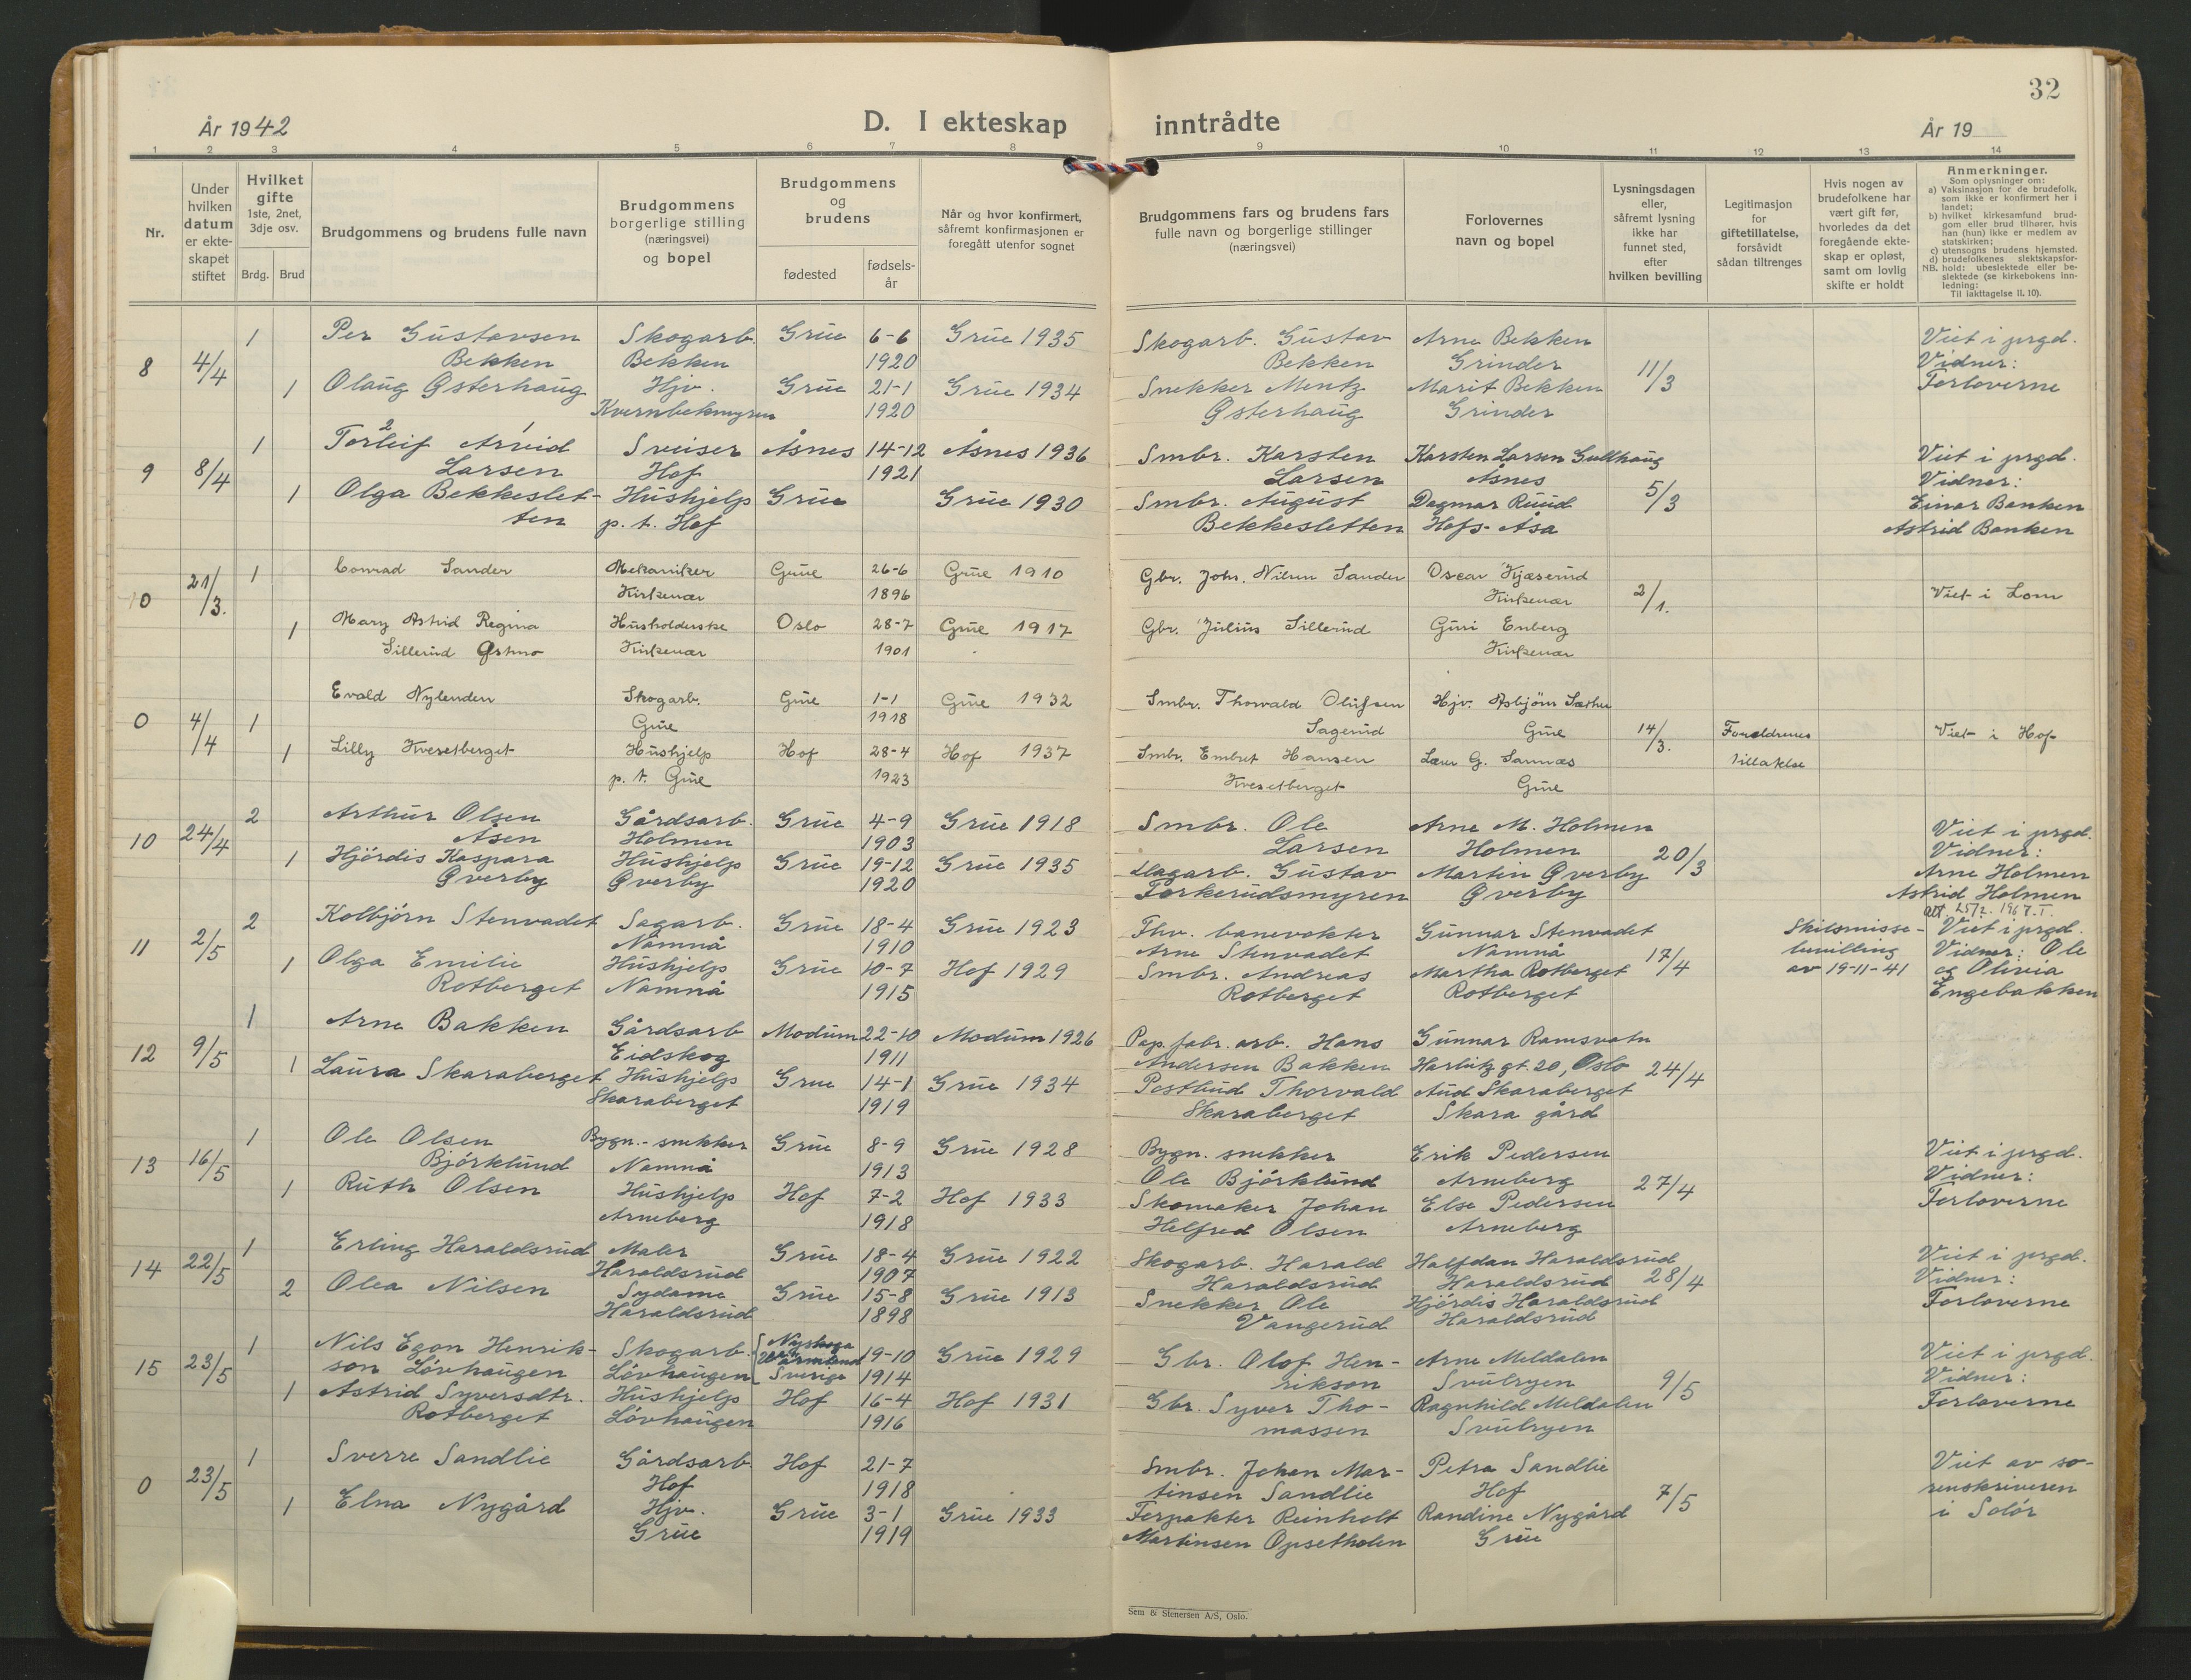 32
År 1942
D. I ekteskap inntrådte
År 19
1 2 3 4 5 6 7 8 9 10 11 12 13 14
Nr.
Under hvilken datum er ekte-skapet stiftet
Hvilket gifte 1ste, 2net, 3dje osv.
Brdg. Brud
Brudgommens og brudens fulle navn
Brudgommens borgerlige stilling (næringsvei) og bopel
Brudgommens og brudens
fødested
fødsels-år
Når og hvor konfirmert, såfremt konfirmasjonen er foregått utenfor sognet
Brudgommens fars og brudens fars fulle navn og borgerlige stillinger (næringsvei)
Forlovernes navn og bopel
Lysningsdagen eller, såfremt lysning ikke har funnet sted, efter hvilken bevilling
Legitimasjon for giftetillatelse, forsåvidt sådan tiltrenges
Hvis nogen av brudefolkene har vært gift før, hvorledes da det foregående ekte-skap er opløst, samt om lovlig skifte er holdt
Anmerkninger.
Som oplysninger om:
a) Vaksinasjon for de brudefolk, som ikke er konfirmert her i landet;
b) hvilket kirkesamfund brud-gom eller brud tilhører, hvis han (hun) ikke er medlem av statskirken;
c) utensogns brudens hjemsted.
d) brudefolkenes slektskapsfor-
NB. hold: ubeslektede eller be-slektede (se kirkebokens inn-ledning:
Til iakttagelse II. 10).
1 Per Gustavsen Skogarb. Grue 6-6 Grue 1935 Skogarb. Gustav Arne Bekken Viet i prgd.
8 4/4 Bekken Bekken 1920 Bekken Grinder 11/3 Vidner:
1 Olaug Østerhaug Hjv. Grue 21-1 Grue 1934 Snekker Mentz Marit Bekken Forloverne
Kvernbekmyren 1920 Østerhaug Grinder
2 1
1 Torleif Arvid Sveiser Åsnes 14-12 Åsnes 1936 Smbr. Karsten Karsten Larsen Gullhaug Viet i prgd.
9 8/4 Larsen Hof 1921 Larsen Åsnes 5/3 Vidner:
1 Olga Bekkeslet- Hushjelp Grue Grue 1930 Smbr. August Dagmar Ruud Einar Banken
ten p. t. Hof Bekkesletten Hofs-Åsa Astrid Banken
1 Conrad Sander Mekaniker Grue 26-6 Grue 1910 Gbr. Johs. Nilsen Sander Oscar Kjæserud
10 21/3. Kirkenær 1896 Kirkenær 2/1. Viet i Lom
1 Mary Astrid Regina Husholderske Oslo 28-7 Grue 1917 Gbr. Julius Sillerud Guri Enberg
Sillerud Østmo Kirkenær 1901 Kirkenær
Evald Nylenden Skogarb. Grue 1-1 Grue 1932 Smbr. Thorvald Olufsen Hjv. Asbjörn Sæther
0 4/4 1 Grue 1918 Sagerud Grue 14/3. Foreldrenes Viet i Hof
1 Lilly Kvesetberget Hushjelp Hof 28-4 Hof 1937 Smbr. Embret Hansen Lærer G. Sannæs tillatelse
p. t. Grue 1923 Kvesetberget Grue
2 Arthur Olsen Gårdsarb. Grue 4-9 Grue 1918 Smbr. Ole Arne M. Holmen Viet i prgd.
10 24/4 Åsen Holmen 1903 Larsen Holmen 20/3 Vidner:
1 Hjördis Kaspara Hushjelp Grue 19-12 Grue 1935 Lagarb. Gustav Martin Øverby Arne Holmen
Øverby Øverby 1920 Torkerudsmyren Øverby Astrid Holmen
att. 25/2. 1967. T.
2 Kolbjörn Stenvadet Sagarb. Grue 18-4 Grue 1923 Fhv. banevokter Gunnar Stenvadet Skilsmisse- Viet i prgd.
11 2/5 Namnå 1910 Arne Stenvadet Namnå 17/4 bevilling Vidner: Ole
1 Olga Emilie Hushjelp Grue 10-7 Hof 1929 Smbr. Andreas Martha Rotberget av 19-11-41 og Olivia
Rotberget Namnå 1915 Rotberget Rotberget Engebakken
1 Arne Bakken Gårdsarb Modum 22-10 Modum 1926 Pap. fabr. arb. Hans Gunnar Ramsvatn
12 9/5 Eidskog 1911 Andersen Bakken Harbitz gt. 20, Oslo 24/4
1 Laura Skaraberget Hushjelp Grue 14-1 Grue 1934 Postbud Thorvald Aud Skaraberget
Skaraberget 1919 Skaraberget Skara gård
1 Ole Olsen Bygn.-snekker Grue 8-9 Grue 1928 Bygn. snekker Erik Pedersen Viet i prgd.
13 16/5 Björklund Namnå 1913 Ole Björklund Arneberg 27/4 Vidner:
1 Ruth Olsen Hushjelp Hof 7-2 Hof 1933 Skomaker Johan Else Pedersen Forloverne
Arneberg 1918 Helfred Olsen Arneberg
1 Erling Haraldsrud Maler Grue 18-4 Grue 1922 Skogarb. Harald Halfdan Haraldsrud Viet i prgd.
14 22/5 Haraldsrud 1907 Haraldsrud Haraldsrud 28/4 Vidner:
2 Olea Nilsen Sydame Grue 15-8 Grue 1913 Snekker Ole Hjördis Haraldsrud Forloverne
Haraldsrud 1898 Vangerud Haraldsrud
1 Nils Egon Henrik- Skogarb. Nyskoga Värmland 19-10 Grue 1929 Gbr. Olof Hen- Arne Meldalen Viet i prgd.
15 23/5 son Lövhaugen Lövhaugen Sverige 1914 rikson Svulryen 9/5 Vidner:
1 Astrid Syversdtr. Hushjelp Hof 16-4 Hof 1931 Gbr. Syver Tho- Ragnhild Meldalen Forloverne
Rotberget Lövhaugen 1916 massen Svulryen
1 Sverre Sandlie Gårdsarb. Hof 21-7 Smbr. Johan Mar- Petra Sandlie Viet av so-
0 23/5 Hof 1918 tinsen Sandlie Hof 7/5 renskriveren
1 Elna Nygård Hjv. Grue 3-1 Grue 1933 Forpakter Reinholt Randine Nygård i Solör
Grue 1919 Martinsen Opsetholen Grue
Sem & Stenersen A/S, Oslo.